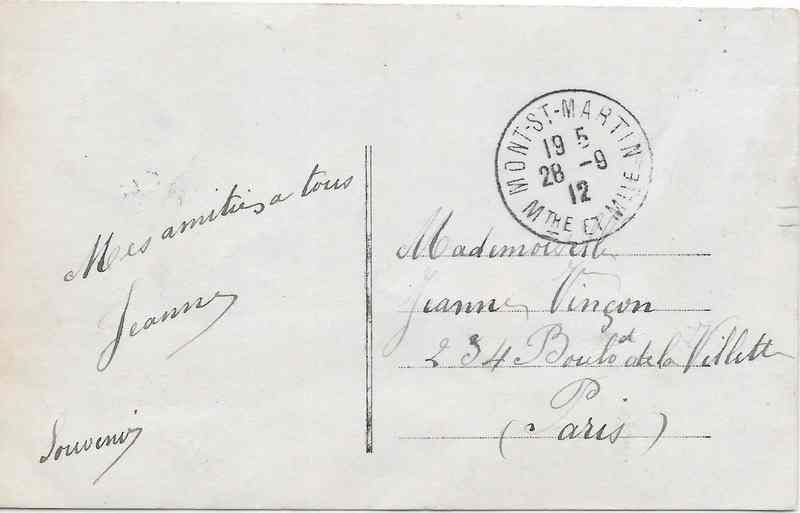 Mes amitiés a tous
Jeanne
Souvenir
MONT-ST-MARTIN
19 5
28 -9
12
MTHE ET MLLE
Mademoiselle
Jeanne Vinçon
234 Bould de la Villette
Paris